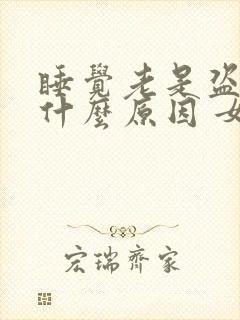 睡覺老是盜
什麼原因 女
宏瑞齊家